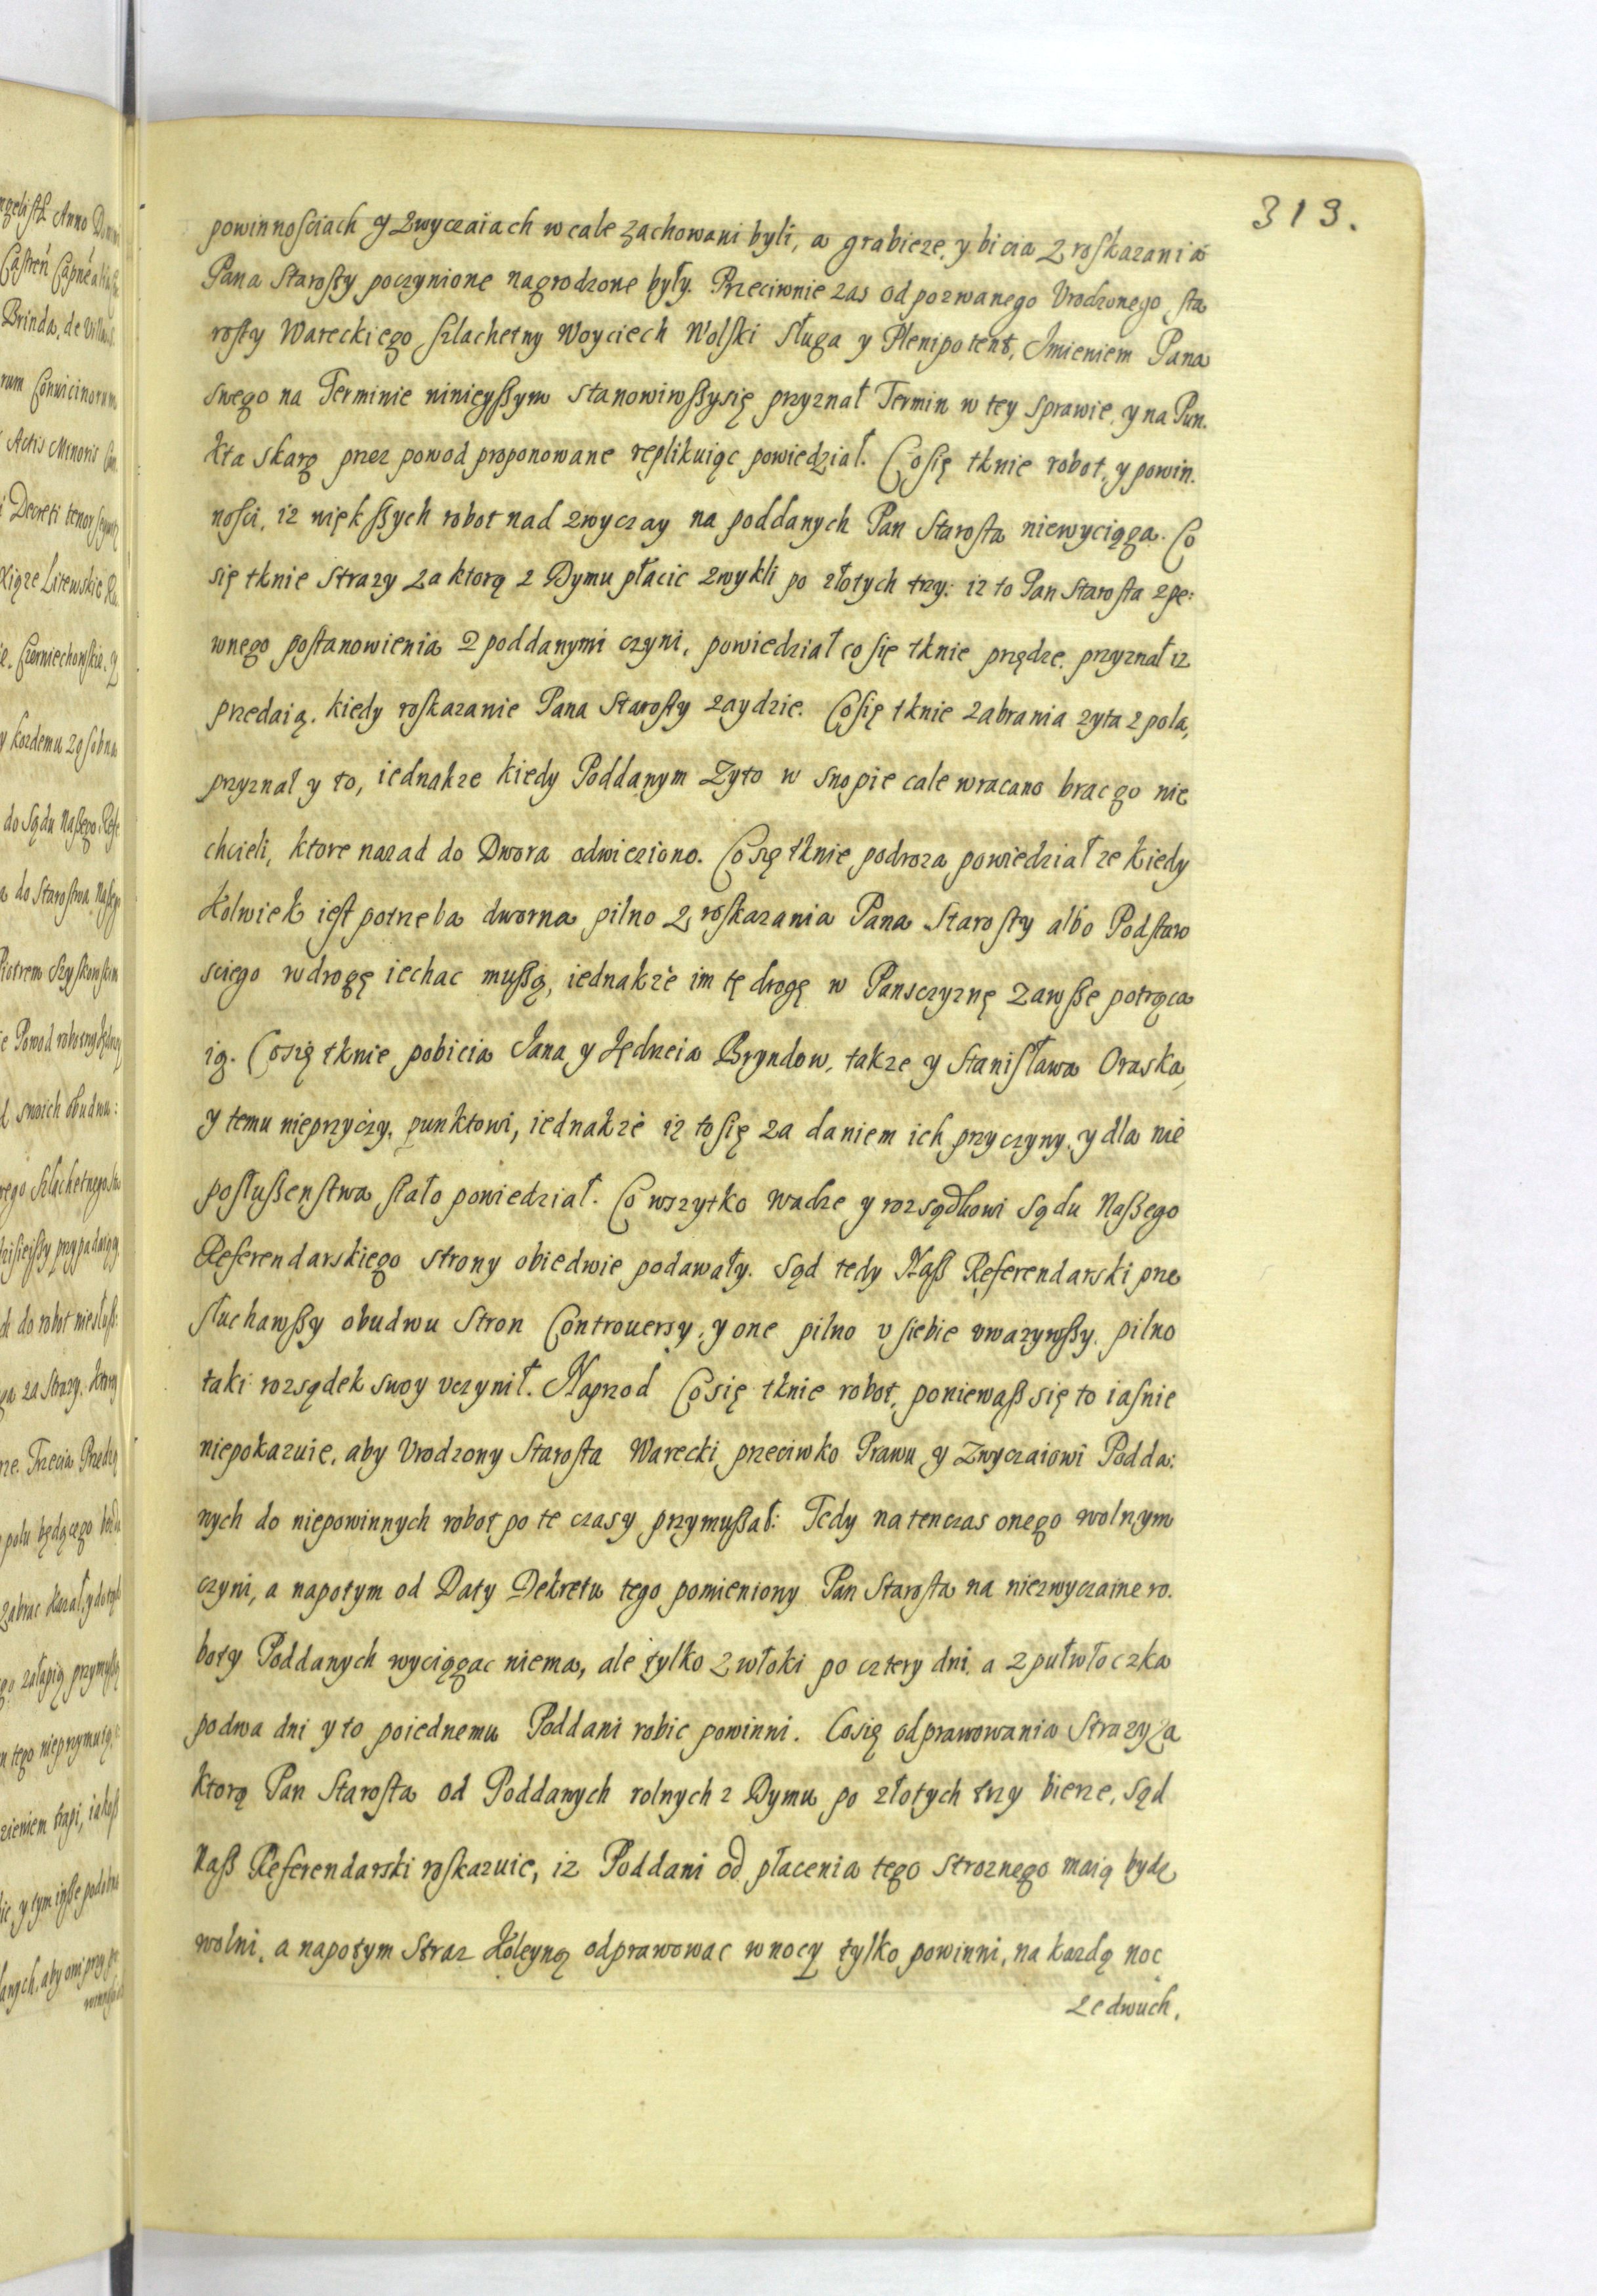 313.
powinnosciach y zwyczaiach w cale zachowani byli, a grabieze, y bicia z roskazania
Pana Starosty poczynione nagrodzone były. Przeciwnie zas od pozwanego Vrodzonego sta
rosty Wareckiego szlachetny Woyciech Wolski Sługa y Plenipotent, Imieniem Pana
swego na Terminie ninieyszym stanowiwszysię przyznał Termin w tey sprawie, y na Pun.
kta skarg przez powod proponowane replikuiąc powiedział. Co się tknie robot, y powin.
nosci, iz większych robot nad zwyczay na poddanych Pan Starosta niewyciąga. Co
się tknie Strazy za ktorą z Dymu płacic zwykli po złotych trzy: iz to Pan Starosta z pe:
wnego postanowienia z poddanymi czyni, powiedział co się tknie prządze, przyznał iz
przedaią, kiedy roskazanie Pana Starosty zaydzie. Cosię tknie zabrania zyta z pola,
przyznał y to, iednakze kiedy Poddanym Zyto w snopie cale wracano brac go nie
chcieli, ktore nazad do Dwora odwieziono. Co się tknie podroza powiedział ze kiedy
kolwiek iest potrzeba dworna pilno z roskazania Pana Starosty albo Podstaro
sciego w drogę iechac muszą, iednakże im tę drogę w Panszczyznę zawsze potrąca
ią. Cosię tknie pobicia Jana y Jędrzeia Bryndow, takze y Stanisława Oraska,
y temu nieprzyczy, punktowi, iednakże iz tosię za daniem ich przyczyny, y dla nie
posłuszenstwa stało powiedział. Co wszytko wadze y rozsądkowi Sądu Naszego
Referendarskiego strony obiedwie podawały. Sąd tedy Nasz Referendarski prze
słuchawszy obudwu Stron Controuersy, y one pilno v siebie vwazywszy, pilno
taki rozsądek swoy vczynił. Naprzod Co się tknie robot, poniewasz się to iasnie
niepokazuie, aby Vrodzony Starosta Warecki, przeciwko Prawu, y Zwyczaiowi Podda:
nych do niepowinnych robot po te czasy przymuszał: Tedy natenczas onego wolnym
czyni, a napotym od Daty Dekretu tego pomieniony Pan Starosta na niezwyczaine ro.
boty Poddanych wyciągac niema, ale tylko z włoki po cztery dni, a z pułwłoczka
podwa dni y to poiednemu Poddani robic powinni. Cosię odprawowania Strazy za
ktorą Pan Starosta od Poddanych rolnych z Dymu po złotych trzy bierze, Sąd
Nasz Referendarski roskazuie, iz Poddani od płacenia tego stroznego maią bydz
wolni, a napotym Straz Koleyną odprawowac w nocy tylko powinni, na kazdą noc
ze dwuch,